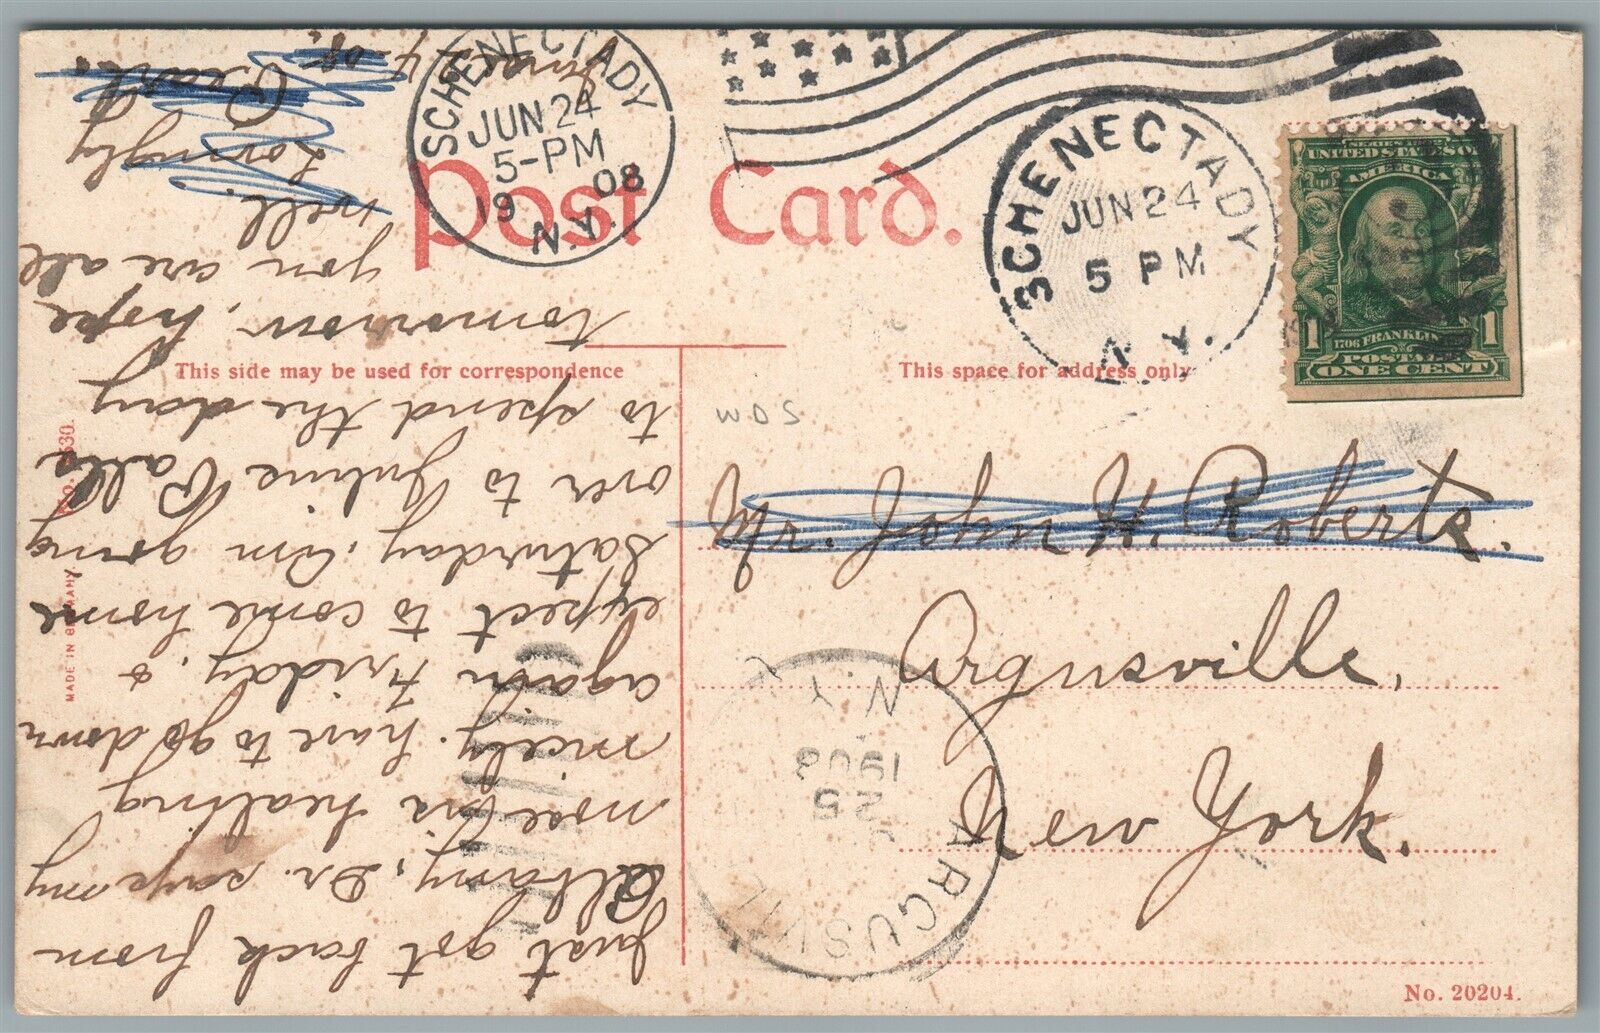 Post Card.
SCHENECTADY
JUN 24
5-PM
1908
N.Y.
SCHENECTADY
JUN 24
5 PM
N.Y.
SERIES 1902
UNITED STATES OF
AMERICA
1 1706 FRANKLIN 1
POSTAGE
ONE CENT
This side may be used for correspondence
This space for address only
Mr. John H. Roberts.
Argusville,
New York.
ARGUSVILLE
25
1908
N.Y.
No. 20204.
MADE IN GERMANY.
Just got back from
Albany, Dr. says my
nose is healing
nicely. have to go down
again Friday. &
expect to come home
Saturday. Am going
over to Falls
to spend the day
tomorrow, hope
you are all
well.
Lovingly
Pearl.